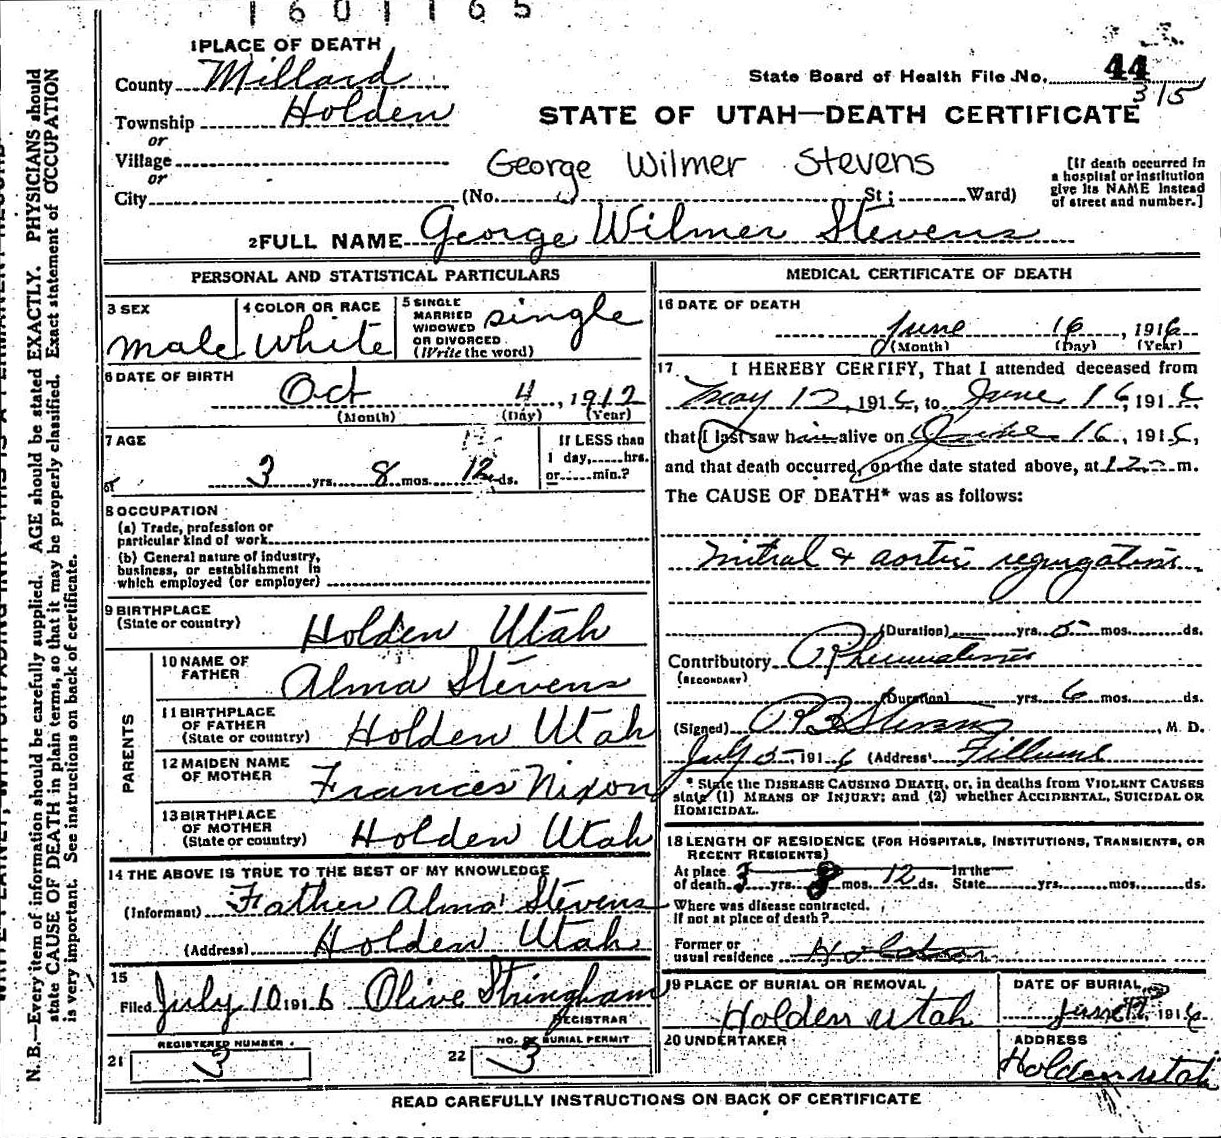 1601165
1 PLACE OF DEATH
County Millard
State Board of Health File No. 44
315
Township Holden
STATE OF UTAH—DEATH CERTIFICATE
or
Village
or
George Wilmer Stevens
City (No. St; Ward)
[If death occurred in
a hospital or institution
give its NAME instead
of street and number.]
2 FULL NAME George Wilmer Stevens
PERSONAL AND STATISTICAL PARTICULARS
3 SEX
male
4 COLOR OR RACE
White
5 SINGLE
MARRIED
WIDOWED
OR DIVORCED
(Write the word)
single
6 DATE OF BIRTH
Oct 4, 1912
(Month) (Day) (Year)
7 AGE
3 yrs. 8 mos. 12 ds.
If LESS than
1 day, hrs.
or min.?
8 OCCUPATION
(a) Trade, profession or
particular kind of work
(b) General nature of industry,
business, or establishment in
which employed (or employer)
9 BIRTHPLACE
(State or country)
Holden Utah
PARENTS
10 NAME OF
FATHER
Alma Stevens
11 BIRTHPLACE
OF FATHER
(State or country)
Holden Utah
12 MAIDEN NAME
OF MOTHER
Frances Nixon
13 BIRTHPLACE
OF MOTHER
(State or country)
Holden Utah
14 THE ABOVE IS TRUE TO THE BEST OF MY KNOWLEDGE
(Informant) Father Alma Stevens
(Address) Holden Utah
15
Filed July 10 1916 Olive Stringham
REGISTRAR
21
REGISTERED NUMBER
3
22
NO. OF BURIAL PERMIT
3
MEDICAL CERTIFICATE OF DEATH
16 DATE OF DEATH
June 16, 1916
(Month) (Day) (Year)
17 I HEREBY CERTIFY, That I attended deceased from
May 12, 1916, to June 16, 1916,
that I last saw him alive on June 16, 1916,
and that death occurred, on the date stated above, at 12 m.
The CAUSE OF DEATH* was as follows:
Mitral & aortic regurgation
(Duration) yrs. 5 mos. ds.
Contributory Rheumatism
(SECONDARY)
(Duration) yrs. 6 mos. ds.
(Signed) Stevens, M. D.
July 5, 1916 (Address) Fillmore
* State the DISEASE CAUSING DEATH, or, in deaths from VIOLENT CAUSES
state (1) MEANS OF INJURY; and (2) whether ACCIDENTAL, SUICIDAL OR
HOMICIDAL.
18 LENGTH OF RESIDENCE (FOR HOSPITALS, INSTITUTIONS, TRANSIENTS, OR
RECENT RESIDENTS)
At place
of death 3 yrs. 8 mos. 12 ds.
In the
State yrs. mos. ds.
Where was disease contracted,
If not at place of death?
Former or
usual residence Holden
19 PLACE OF BURIAL OR REMOVAL
Holden Utah
DATE OF BURIAL
June 1916
20 UNDERTAKER
ADDRESS
Holden Utah
READ CAREFULLY INSTRUCTIONS ON BACK OF CERTIFICATE
N. B.—Every item of information should be carefully supplied. AGE should be stated EXACTLY. PHYSICIANS should
state CAUSE OF DEATH in plain terms, so that it may be properly classified. Exact statement of OCCUPATION
is very important. See instructions on back of certificate.